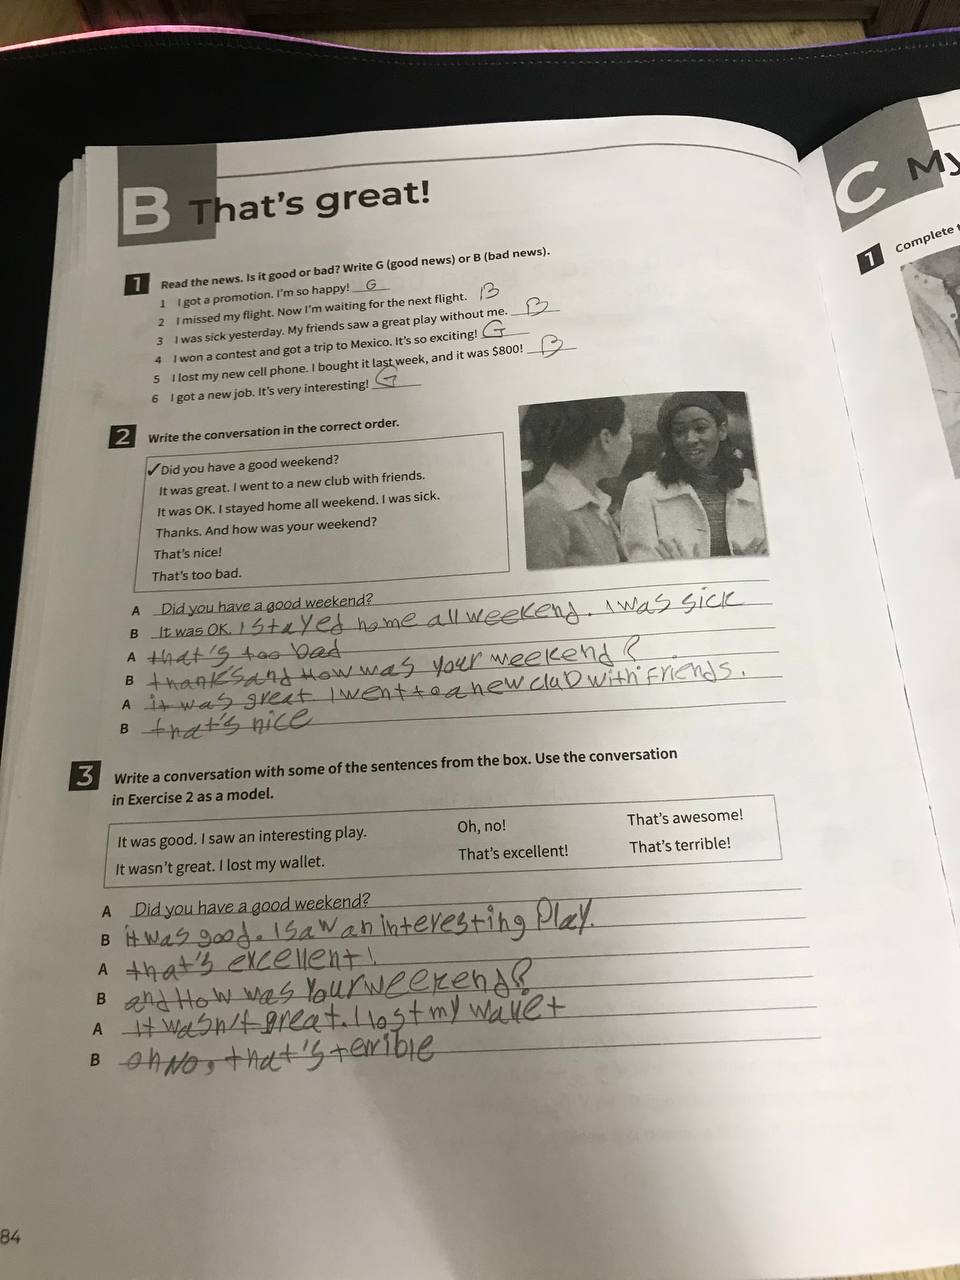 B That's great!
1 Read the news. Is it good or bad? Write G (good news) or B (bad news).
1 I got a promotion. I'm so happy! G
2 I missed my flight. Now I'm waiting for the next flight. B
3 I was sick yesterday. My friends saw a great play without me. B
4 I won a contest and got a trip to Mexico. It's so exciting! G
5 I lost my new cell phone. I bought it last week, and it was $800! B
6 I got a new job. It's very interesting! G
2 Write the conversation in the correct order.
✓Did you have a good weekend?
It was great. I went to a new club with friends.
It was OK. I stayed home all weekend. I was sick.
Thanks. And how was your weekend?
That's nice!
That's too bad.
A Did you have a good weekend?
B It was OK. I stayed home all weekend. I was sick
A that's too bad
B thank's and How was your weekend?
A it was great. I went to a new club with friends.
B that's nice
3 Write a conversation with some of the sentences from the box. Use the conversation
in Exercise 2 as a model.
It was good. I saw an interesting play. Oh, no! That's awesome!
It wasn't great. I lost my wallet. That's excellent! That's terrible!
A Did you have a good weekend?
B it was good. I saw an interesting Play.
A that's excellent!
B and How was Your weekend?
A It wasn't great. I lost my wallet
B oh No, that's terrible
84
C My
1 Complete